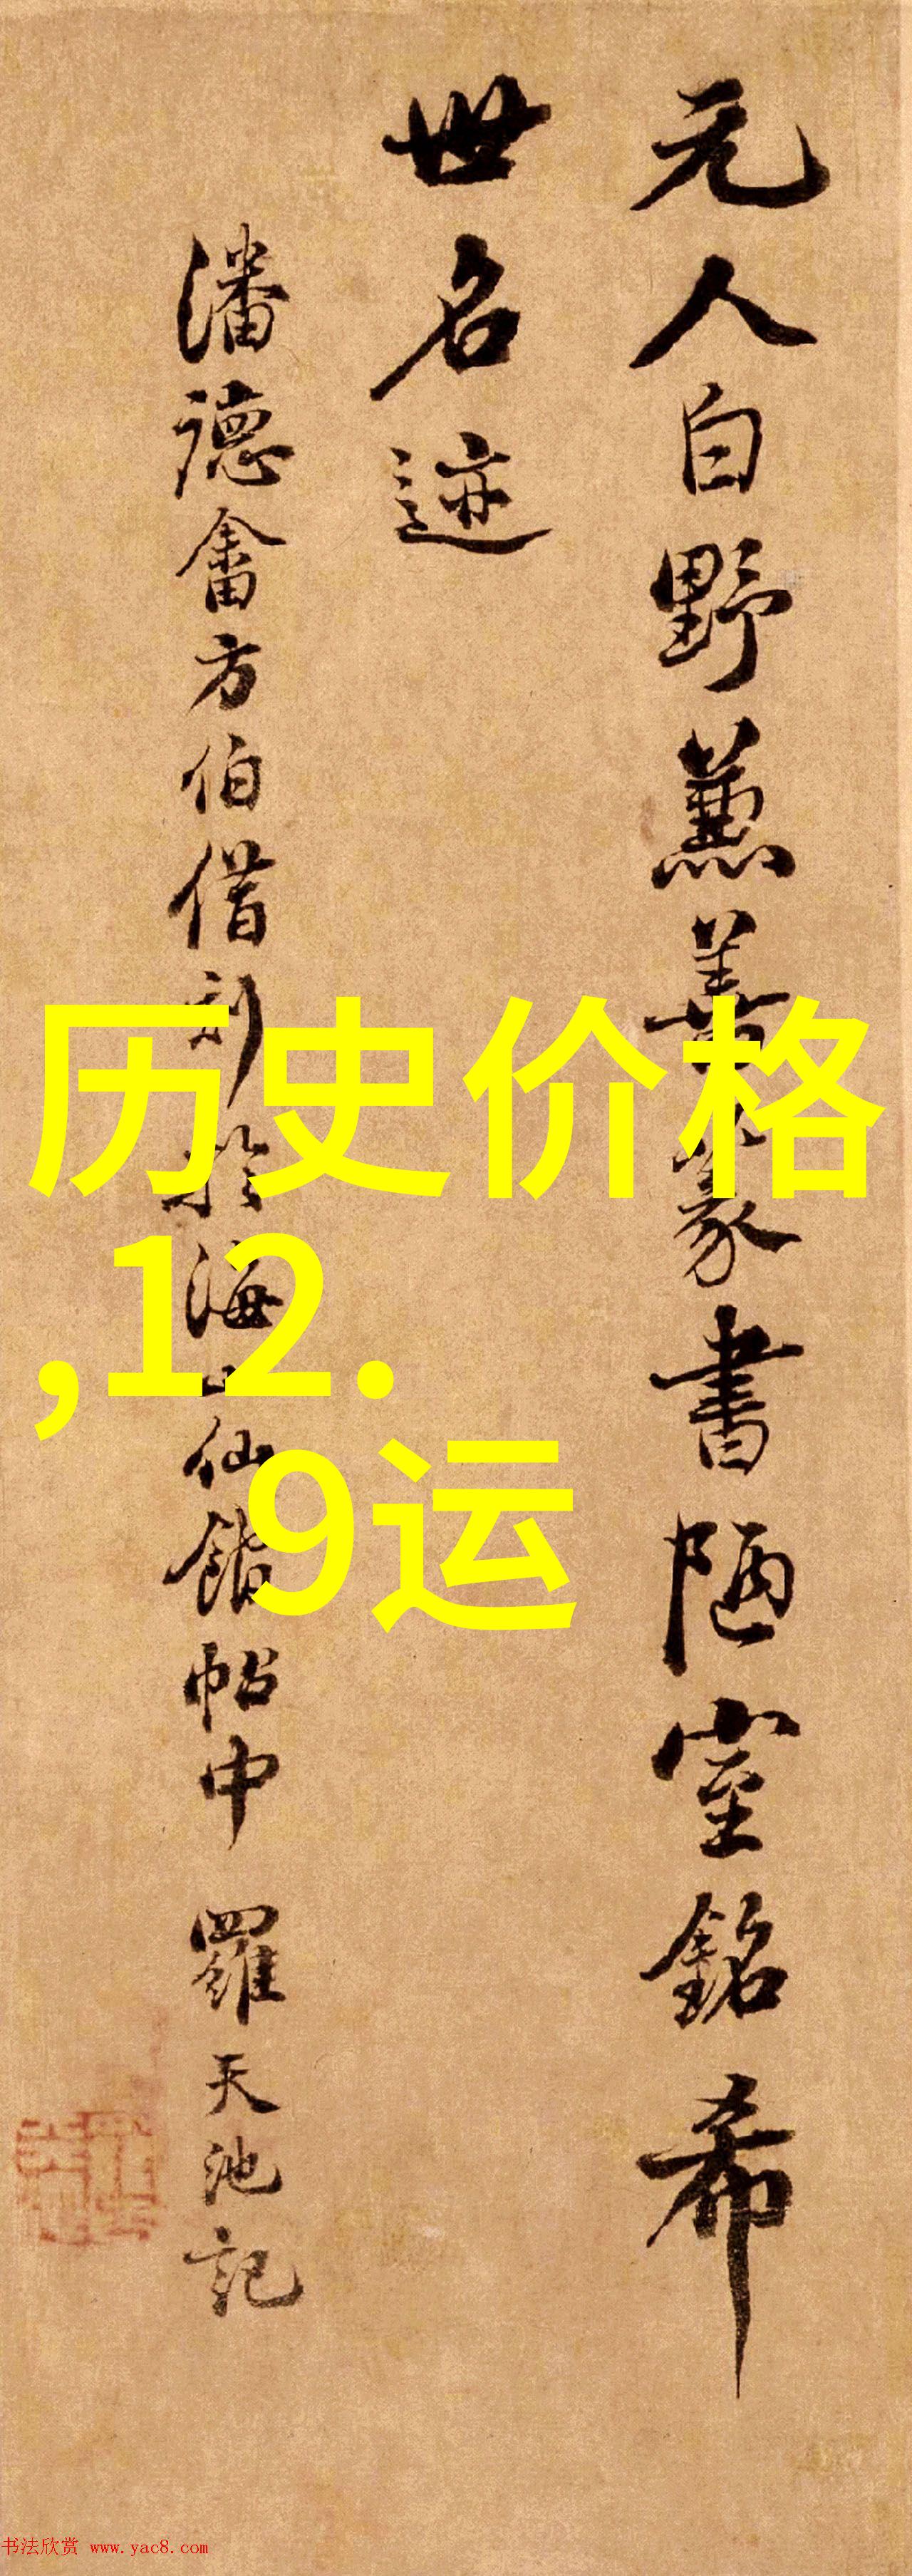 元人白野兼善篆書陋室銘希
世名迹
潘德畬方伯借刻於海山仙館帖中 羅天池記
历史价格
,12.
9运
书法欣赏 www.yac8.com